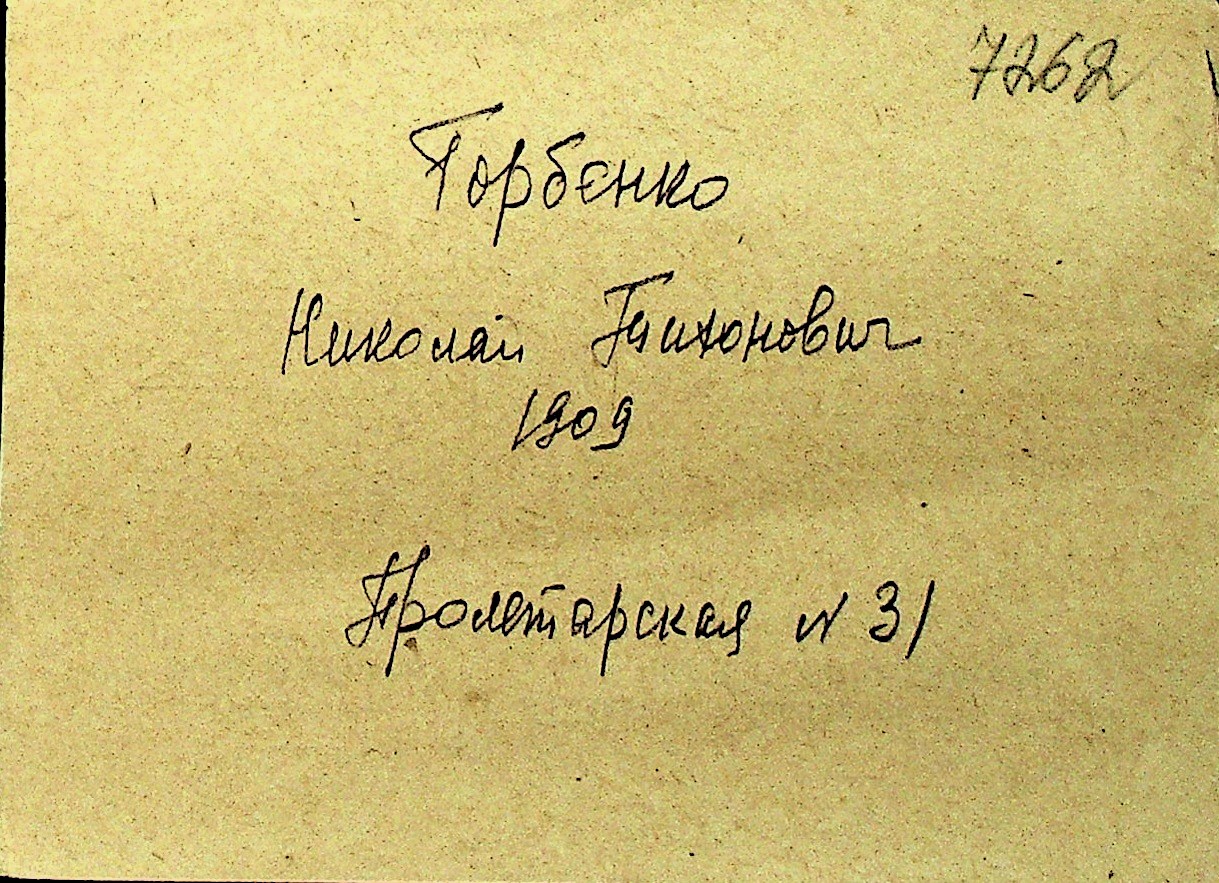 7262
Горбенко
Николай Тихонович
1909
Пролетарская № 31